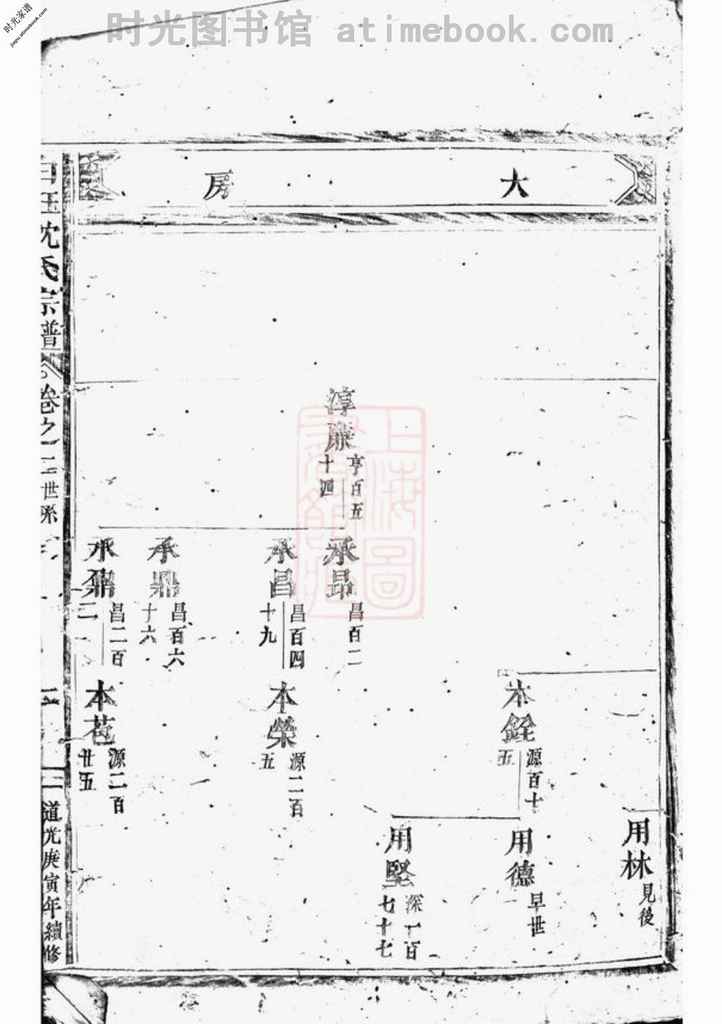 时光图书馆 atimebook.com
时光家谱
jiapu.atimebook.com
大房
淳 亨百五十四
承昂 昌百二
承昌 昌百四十九
承鼎 昌百六十六
承鼐 昌二百二
本銓 源百十五
本榮 源二百五
本苞 源二百廿五
用林 見後
用德 早世
用堅 深一百七十七
沈氏宗譜 卷之 世系
道光庚寅年續修
上海圖